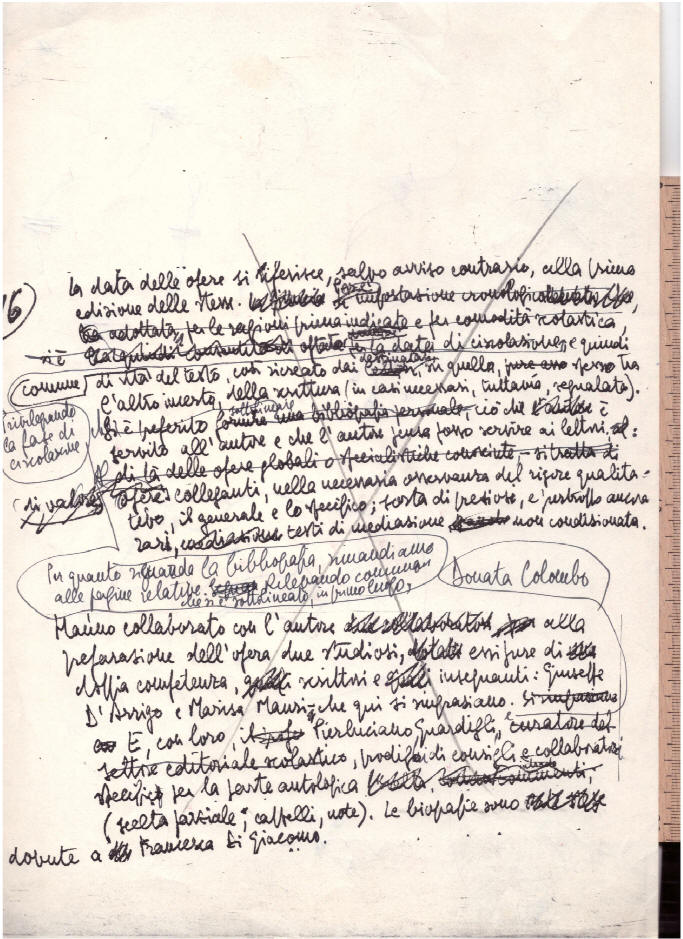 16)
La data delle opere si riferisce, salvo avviso contrario, alla prima
edizione delle stesse. impostazione
adottata, per le ragioni prima indicate e per comodità scolastica,
si è la data di circolazione, e quindi
comune di vita del testo, così ricreato dai destinatari, in quella, spesso tra
l'altro incerta, della scrittura (in casi necessari, tuttavia, segnalata).
privilegiando
la fase di
circolazione
Si è preferito sottolineare fornire una bibliografia personale, ciò che è
servito all'autore e che l'autore pensa possa servire ai lettori, al:
di là delle opere globali o specialistiche
di valore opere colleganti, nella necessaria osservanza del rigore qualita=
tivo, il generale e lo specifico; sorta di preziose, e purtroppo ancora
rari, testi di mediazione non condizionata.
Per quanto riguarda la bibliografia, rimandiamo
alle pagine relative. Rilevando comunque
che si è sottolineato, in primo luogo,
Donata Colombo
Hanno collaborato con l'autore alla
preparazione dell'opera due studiosi, essi pure di
doppia competenza, scrittori e insegnanti: Giuseppe
D'Arrigo e Marisa che qui si ringraziano.
E, con loro, Pierluciano Guardigli, curatore del
settore editoriale scolastico, prodigo di consigli e collaboratore
specifico per la parte antologica
(scelta parziale, cappelli, note). Le biografie sono
dovute a Francesca Di Giacomo.